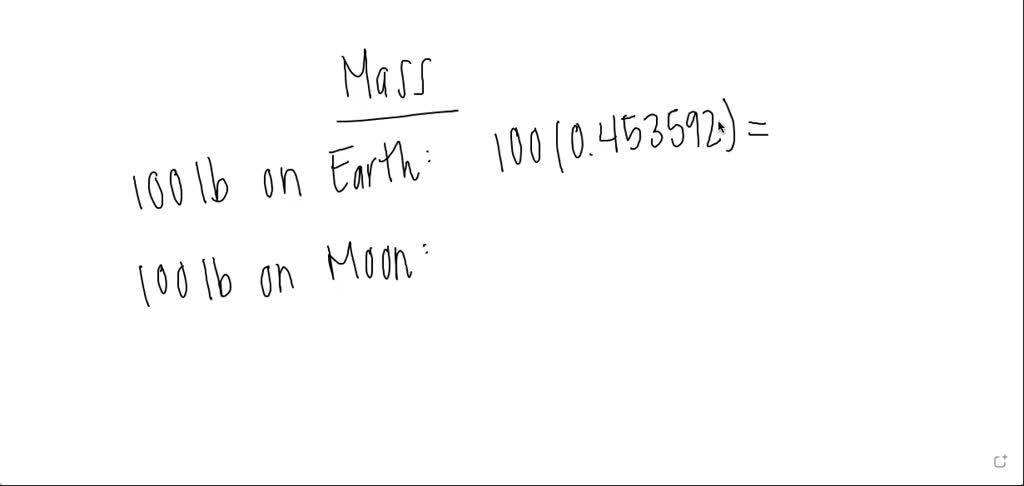 Mass
100 lb on Earth: 100(0.453592) =
100 lb on Moon: